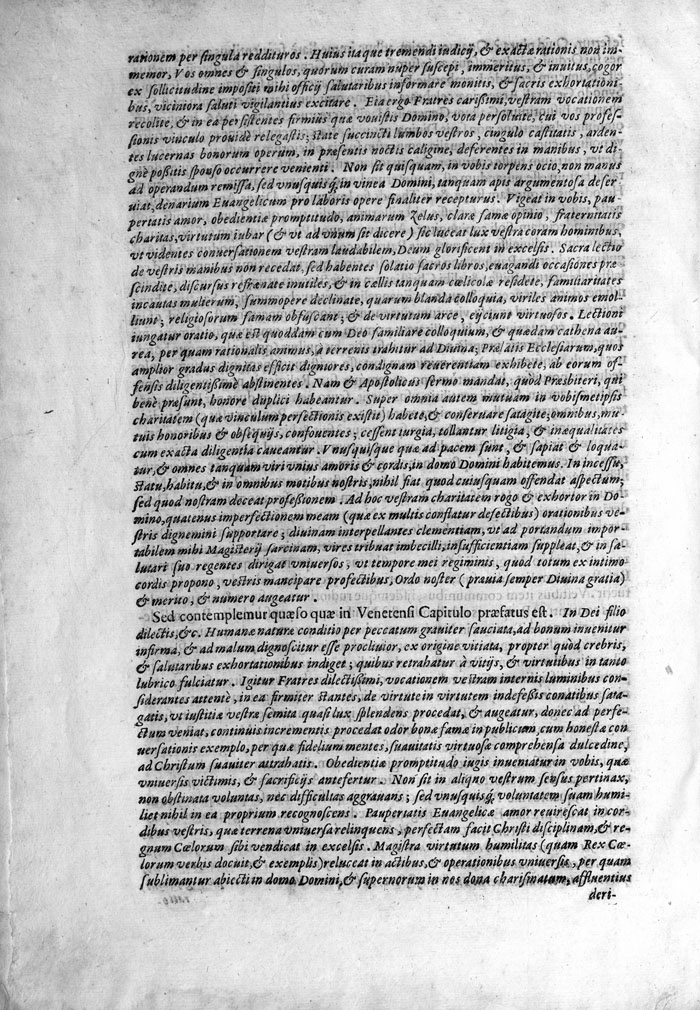 rationem per singula reddituros. Huius itaque tremendi iudicij, & exactæ rationis non im-
memor, Vos omnes & singulos, quorum curam nuper suscepi, immeritus, & inuitus, cogor
ex sollicitudine impositi mihi officij salutaribus informare monitis, & sacris exhortationi-
bus, viciniora saluti vigilantius excitare. Eia ergo Fratres carissimi, vestram vocationem
recolite, & in ea persistentes firmius quæ vouistis Domino, vota persoluite, cui vos profes-
sionis vinculo prouidè relegastis; state succincti lumbos vestros, cingulo castitatis, arden-
tes lucernas bonorum operum, in præsentis noctis caligine, deferentes in manibus, vt di-
gnè possitis sponso occurrere venienti. Non sit quisquam, in vobis torpens ocio, non manus
ad operandum remissa, sed vnusquisq́; in vinea Domini, tanquam apis argumentosa deser
uiat, denarium Euangelicum pro laboris opere finaliter recepturus. Vigeat in vobis, pau-
pertatis amor, obedientiæ promptitudo, animarum zelus, claræ famæ opinio, fraternitatis
charitas, virtutum iubar (& vt ad vnum sit dicere) sic luceat lux vestra coram hominibus,
vt videntes conuersationem vestram laudabilem, Deum glorificent in excelsis. Sacra lectio
de vestris manibus non recedat, sed habentes solatio sacros libros, euagandi occasiones præ
scindite, discursus refrænate inutiles, & in cællis tanquam cœlicolæ residete, familiaritates
incautas mulierum, summopere declinate, quarum blanda colloquia, viriles animos emol-
liunt; religiosorum famam obfuscant; & de virtutum arce, eijciunt virtuosos. Lectioni
iungatur oratio, quæ est quoddam cum Deo familiare colloquium, & quædam cathena au-
rea, per quam rationalis, animus, a terrenis trahitur ad Diuina; Prælatis Ecclesiarum, quos
amplior gradus dignitas efficit digniores, condignam reuerentiam exhibete, ab eorum of-
fensis diligentissimè abstinentes. Nam & Apostolicus sermo mandat, quòd Præsbiteri, qui
benè præsunt, honore duplici habeantur. Super omnia autem mutuam in vobismetipsis
charitatem (quæ vinculum perfectionis existit) habete, & conseruare satagite; omnibus, mu-
tuis honoribus & obsequijs, confouentes; cessent iurgia, tollantur litigia, & inæqualitates
cum exacta diligentia caueantur. Vnusquisque quæ ad pacem sunt, & sapiat & loqua-
tur, & omnes tanquam viri vnius amoris & cordis, in domo Domini habitemus. In incessu,
statu, habitu, & in omnibus motibus nostris, nihil fiat quod cuiusquam offendat aspectum;
sed quod nostram deceat professionem. Ad hoc vestram charitatem rogo & exhortor in Do-
mino, quatenus imperfectionem meam (quæ ex multis conflatur defectibus) orationibus ve-
stris dignemini supportare; diuinam interpellantes clementiam, vt ad portandum impor-
tabilem mihi Magisterij sarcinam, vires tribuat imbecilli, insufficientiam suppleat, & in sa-
lutari suo regentes dirigat vniuersos, vt tempore mei regiminis, quod totum ex intimo
cordis propono, vestris mancipare profectibus, Ordo noster (præuia semper Diuina gratia)
& merito, & numero augeatur.
Sed contemplemur quæso quæ in Venetensi Capitulo præfatus est. In Dei filio
dilectis, &c. Humanæ naturæ conditio per peccatum grauiter sauciata, ad bonum inuenitur
infirma, & ad malum, dignoscitur esse procliuior, ex origine vitiata, propter quod crebris,
& salutaribus exhortationibus indiget; quibus retrahatur à vitijs, & virtutibus in tanto
lubrico fulciatur. Igitur Fratres dilectissimi, vocationem vestram internis luminibus con-
siderantes attentè, in ea firmiter stantes, de virtute in virtutem indefessis conatibus sata-
gatis, vt iustitiæ vestræ semita quasi lux splendens procedat, & augeatur, donec ad perfe-
ctum veniat, continuis incrementis procedat odor bonæ famæ in publicum, cum honestæ con
uersationis exemplo, per quæ fidelium mentes, suauitatis virtuosa comprehensa dulcedine,
ad Christum suauiter attrahatis. Obedientiæ promptitudo iugis inueniatur in vobis, quæ
vniuersis victimis, & sacrificijs antefertur. Non sit in aliquo vestrum sensus pertinax,
non obstinata voluntas, nec difficultas aggrauans; sed vnusquisq́; voluntatem suam humi-
liet nihil in ea proprium recognoscens. Paupertatis Euangelicæ amor reuirescat in cor-
dibus vestris, quæ terrena vniuersa relinquens, perfectam facit Christi disciplinam, & re-
gnum Cœlorum sibi vendicat in excelsis. Magistra virtutum humilitas (quam Rex Cœ-
lorum verbis docuit, & exemplis) reluceat in actibus, & operationibus vniuersis, per quam
sublimantur abiecti in domo Domini, & supernorum in nos dona charismatum, affluentius
deri-